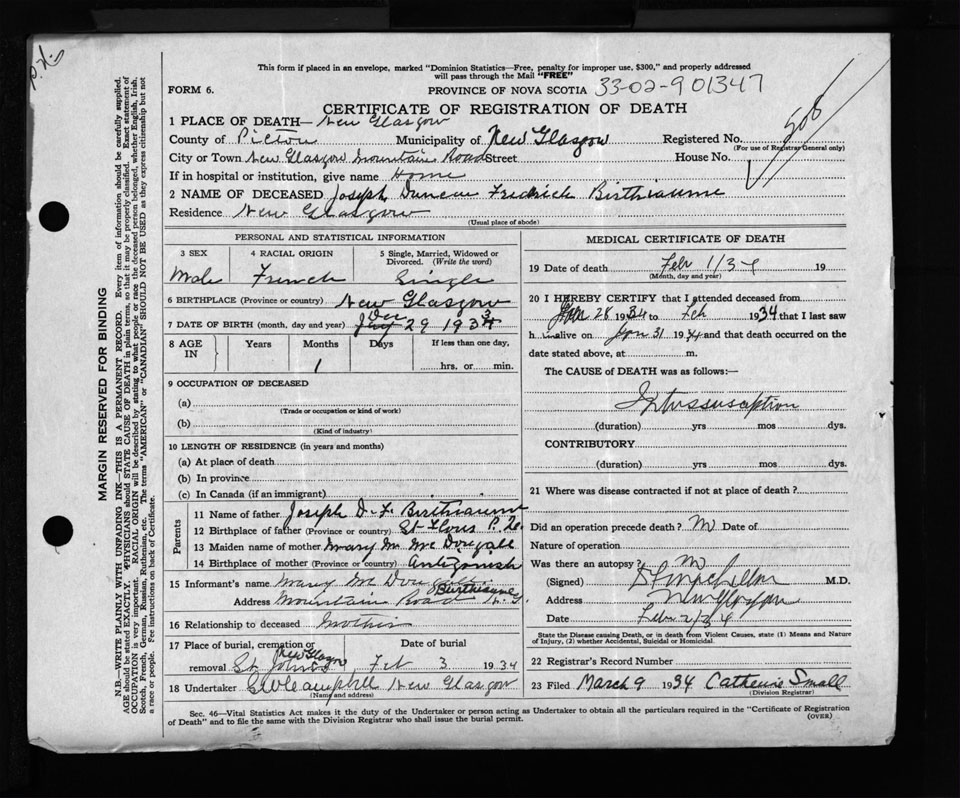 This form if placed in an envelope, marked "Dominion Statistics—Free, penalty for improper use, $300," and properly addressed
will pass through the Mail "FREE"
FORM 6.
PROVINCE OF NOVA SCOTIA 33-02-901347
CERTIFICATE OF REGISTRATION OF DEATH
506
1 PLACE OF DEATH— New Glasgow
County of Pictou Municipality of New Glasgow Registered No.
(For use of Registrar General only)
City or Town New Glasgow Mountain Road Street House No.
If in hospital or institution, give name Home
2 NAME OF DECEASED Joseph Duncan Fredrick Birthiaume
Residence New Glasgow
(Usual place of abode)
PERSONAL AND STATISTICAL INFORMATION
3 SEX 4 RACIAL ORIGIN 5 Single, Married, Widowed or Divorced. (Write the word)
Male French Single
6 BIRTHPLACE (Province or country) New Glasgow
7 DATE OF BIRTH (month, day and year) Dec 29 1933
8 AGE IN Years Months Days If less than one day,
1 hrs. or min.
9 OCCUPATION OF DECEASED
(a)
(Trade or occupation or kind of work)
(b)
(Kind of industry)
10 LENGTH OF RESIDENCE (in years and months)
(a) At place of death
(b) In province
(c) In Canada (if an immigrant)
Parents
11 Name of father Joseph D. F. Birthiaume
12 Birthplace of father (Province or country) St Flous P. Q.
13 Maiden name of mother Mary M. Mc Dougall
14 Birthplace of mother (Province or country) Antigonish
15 Informant's name Mary Mc Dougall Birthiaume
Address Mountain Road N. G.
16 Relationship to deceased Mother
17 Place of burial, cremation or removal St. Johns New Glasgow Date of burial Feb 3 1934
18 Undertaker C W Campbell New Glasgow
(Name and address)
MEDICAL CERTIFICATE OF DEATH
19 Date of death Febr 1/34 19
(Month, day and year)
20 I HEREBY CERTIFY that I attended deceased from
Jan 28 1934 to Feb 1934 that I last saw
h alive on Jan 31 1934 and that death occurred on
date stated above, at m.
The CAUSE of DEATH was as follows:—
Intussusception
(duration) yrs mos dys.
CONTRIBUTORY
(duration) yrs mos dys.
21 Where was disease contracted if not at place of death?
Did an operation precede death? No Date of
Nature of operation
Was there an autopsy? No
(Signed) M.D.
Address New Glasgow
Date Febr 2/34
State the Disease causing Death, or in death from Violent Causes, state (1) Means and Nature
of Injury, (2) whether Accidental, Suicidal or Homicidal.
22 Registrar's Record Number
23 Filed March 9 1934 Catherine Small
(Division Registrar)
Sec. 46—Vital Statistics Act makes it the duty of the Undertaker or person acting as Undertaker to obtain all the particulars required in the "Certificate of Registration
of Death" and to file the same with the Division Registrar who shall issue the burial permit.
(OVER)
MARGIN RESERVED FOR BINDING
N.B.—WRITE PLAINLY WITH UNFADING INK—THIS IS A PERMANENT RECORD. Every item of information should be carefully supplied.
AGE should be stated EXACTLY. PHYSICIANS should STATE CAUSE OF DEATH in plain terms, so that it may be properly classified. Exact statement of
OCCUPATION is very important. RACIAL ORIGIN will be described by stating to what people or race the deceased person belonged, whether English, Irish,
Scotch, French, German, Russian, Ruthenian, etc. The terms "AMERICAN" or "CANADIAN" SHOULD NOT BE USED as they express citizenship but not
a race or people. Fee instructions on back of Certificate.